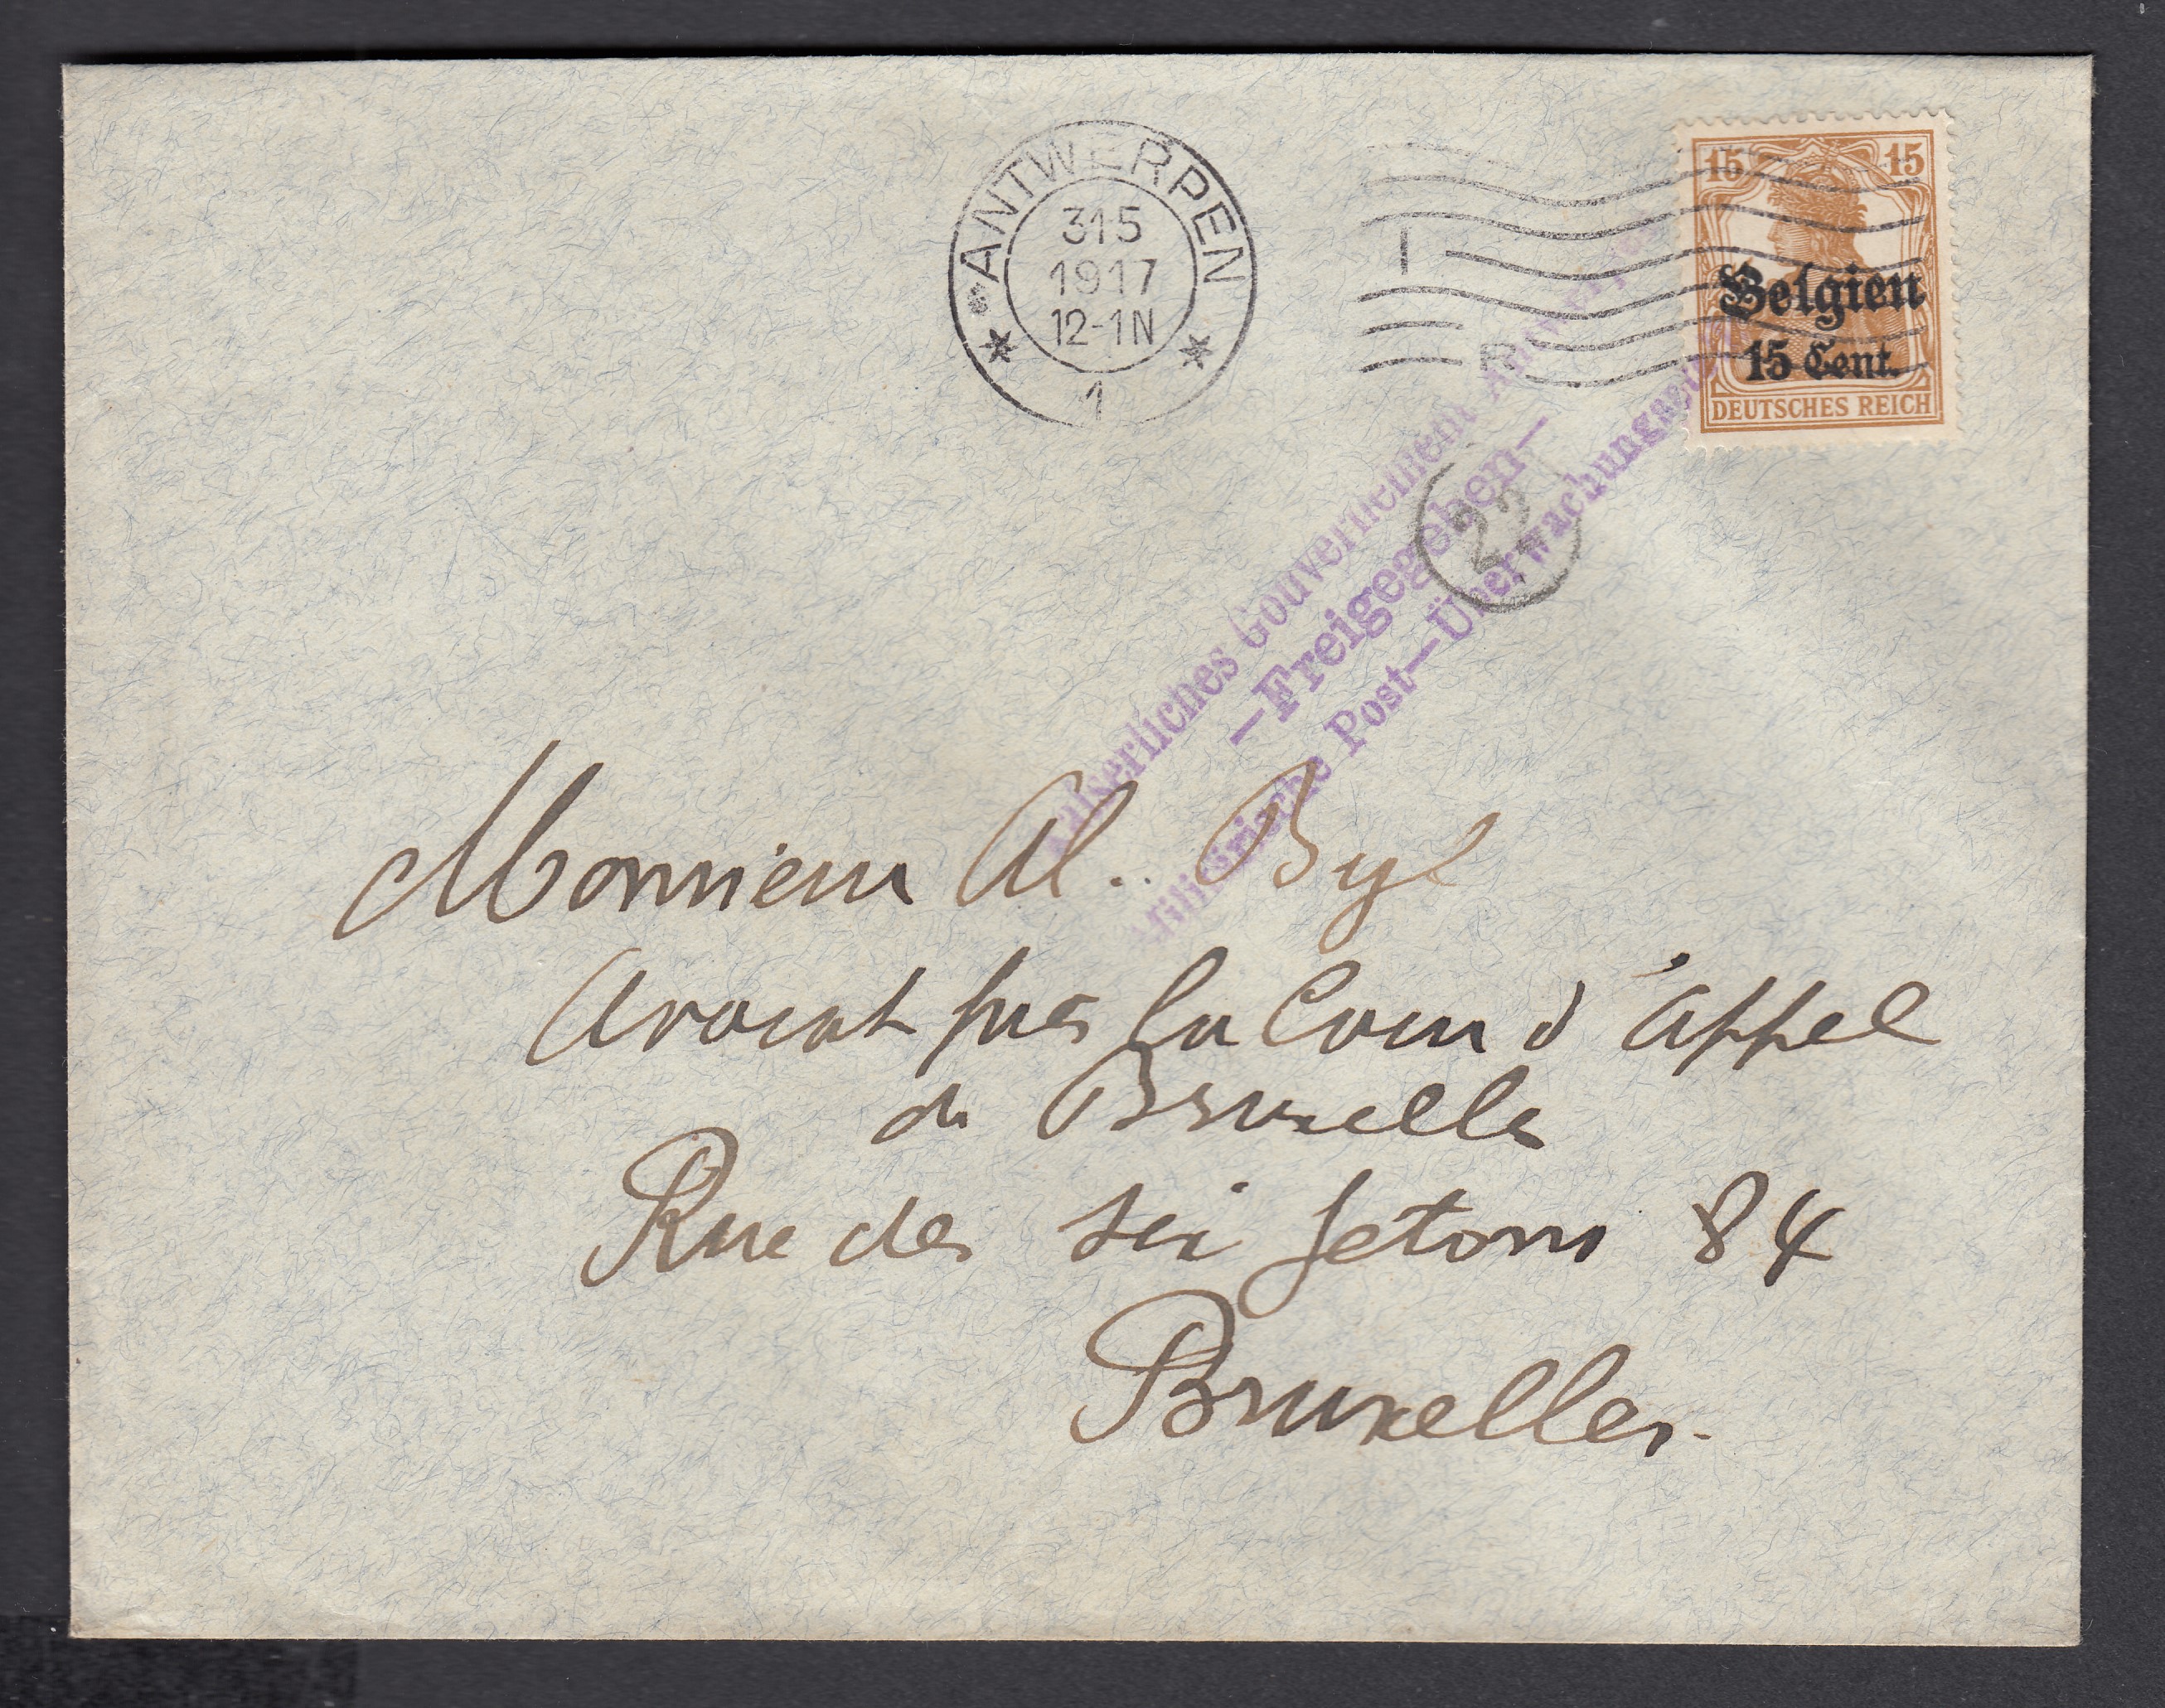 ANTWERPEN
31 5
1917
12-1N
1
I
R
15 15
Belgien
15 Cent.
DEUTSCHES REICH
Kaiserliches Gouvernement Antwerpen
—Freigegeben—
Militärische Post—Überwachungsstelle
22
Monsieur Al. Byl
Avocat près la Cour d'appel
de Bruxelles
Rue des six Jetons 84
Bruxelles.